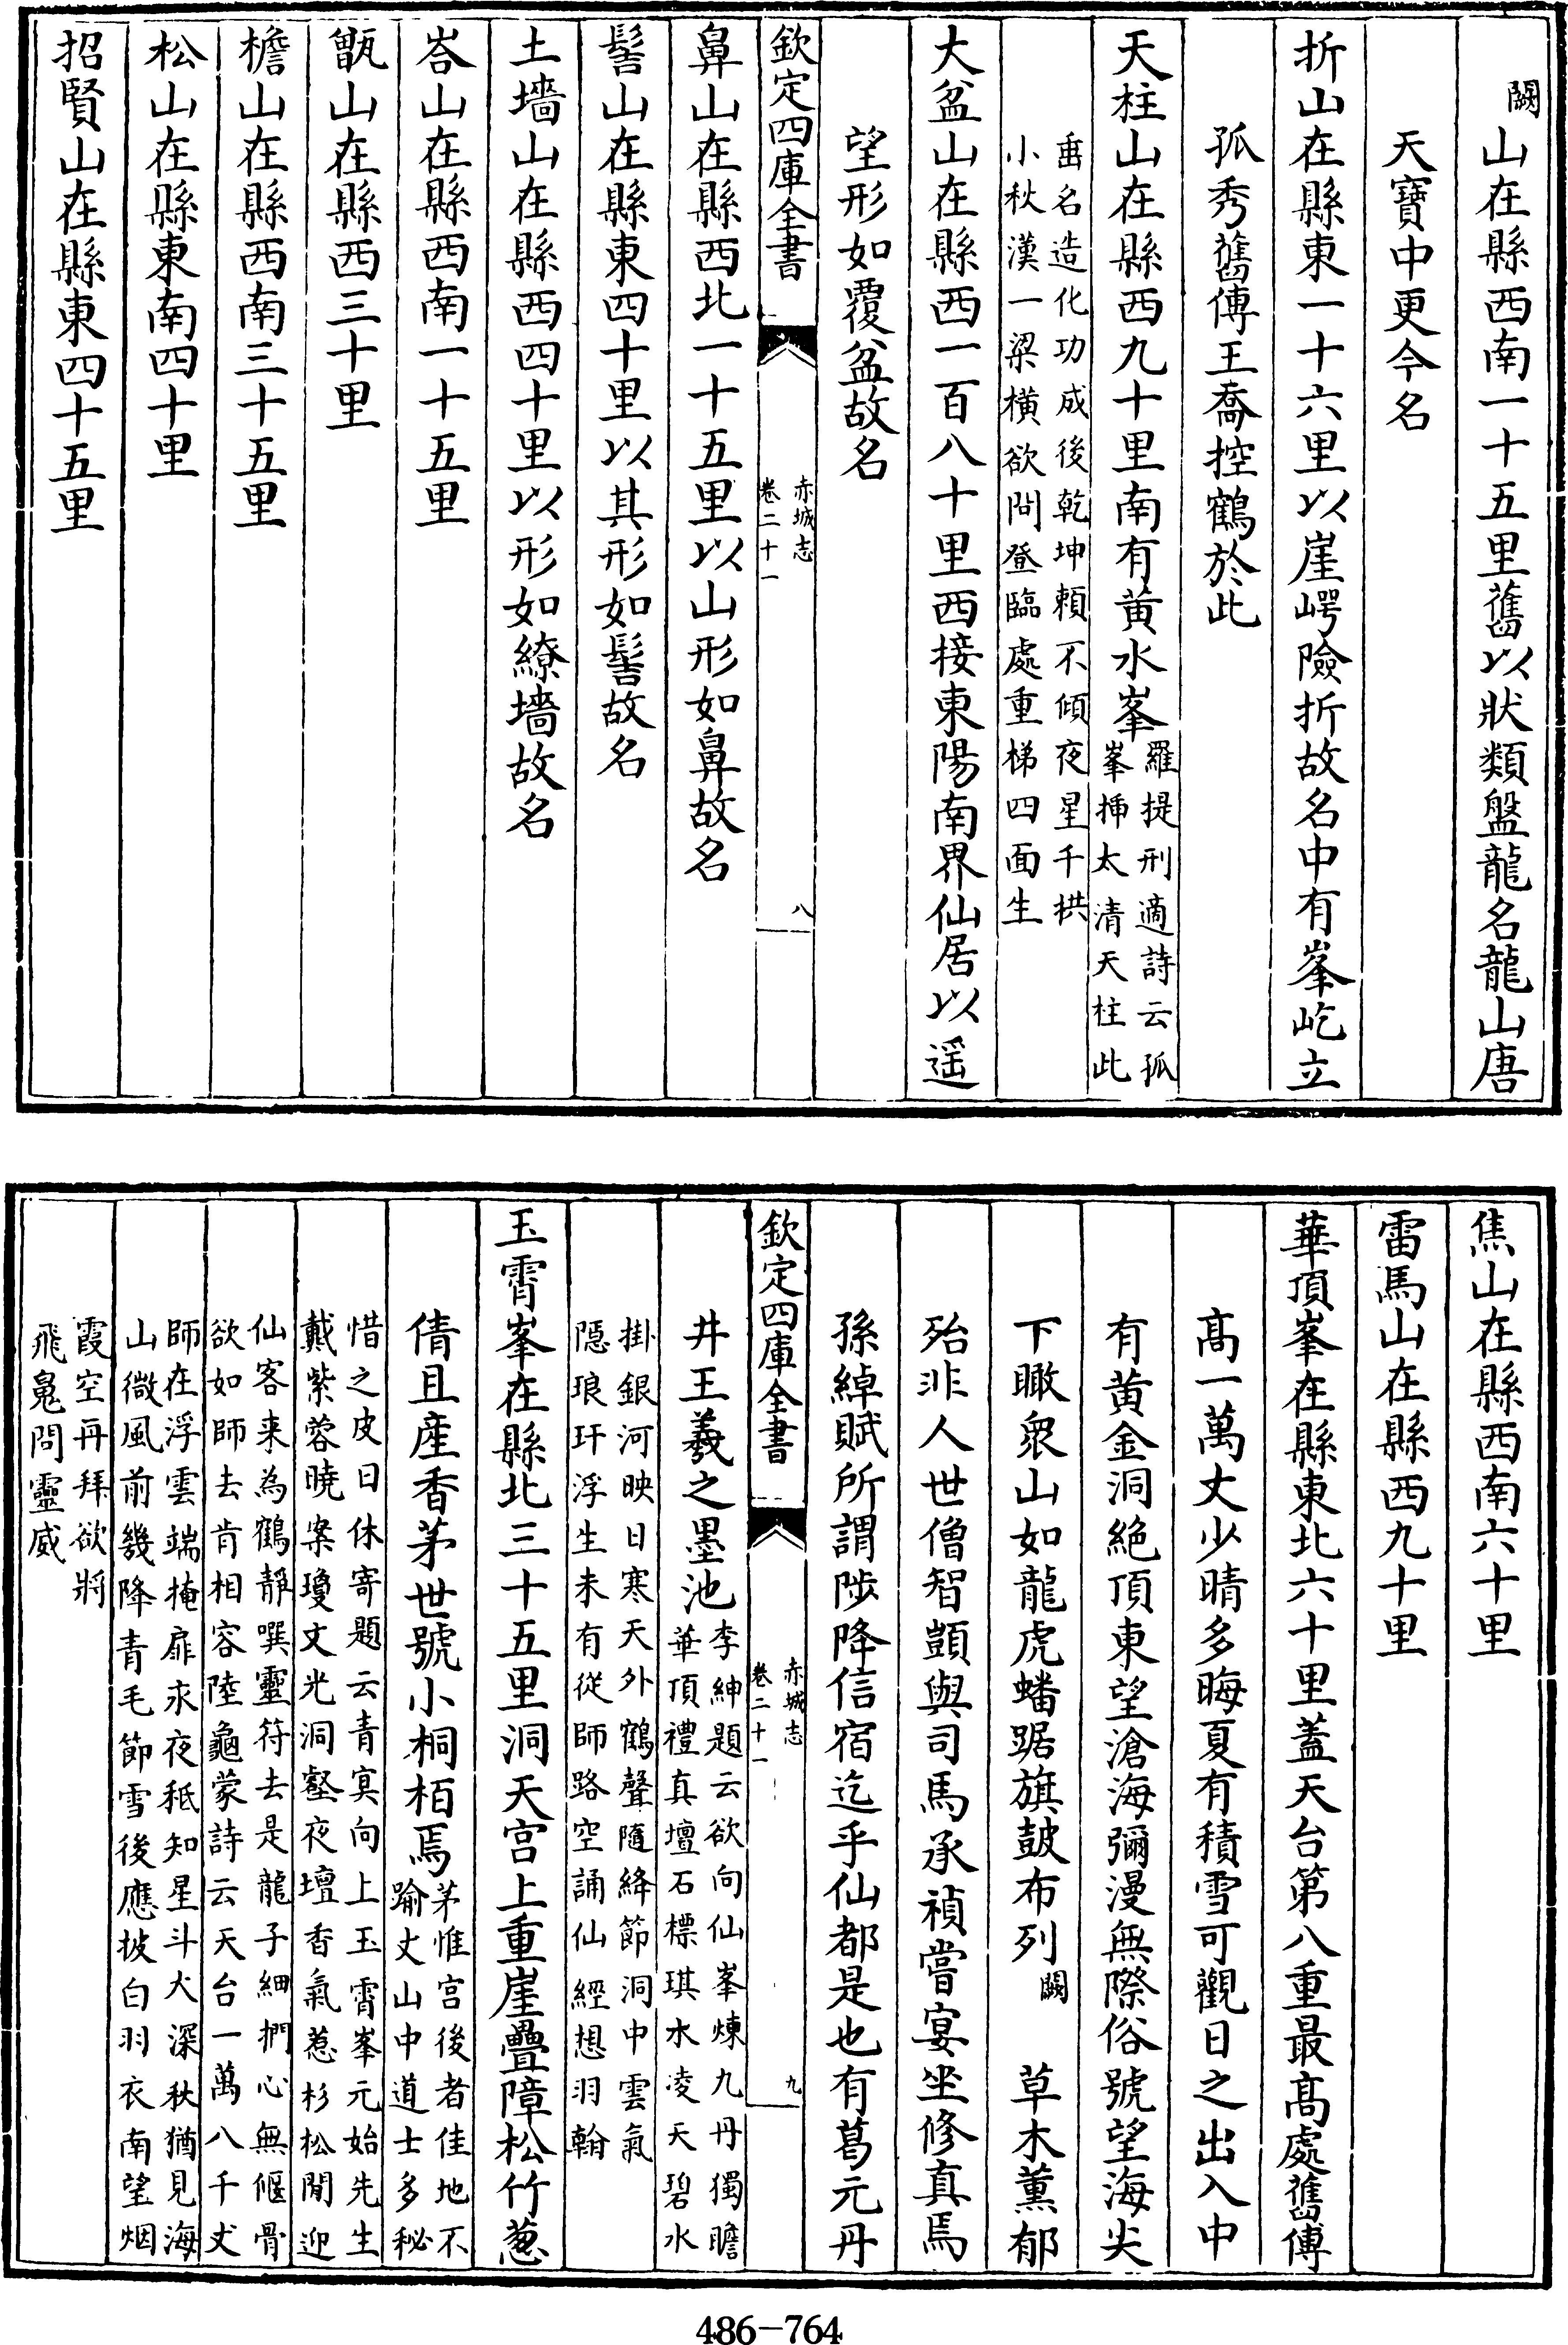 闕山在縣西南一十五里舊以狀類盤龍名龍山唐
天寶中更今名
折山在縣東一十六里以崖崿險折故名中有峯屹立
孤秀舊傳王喬控鶴於此
天柱山在縣西九十里南有黄水峯羅提刑適詩云孤
峯揷太清天柱此
垂名造化功成後乾坤頼不傾夜星千拱
小秋漢一梁横欲問登臨處重梯四面生
大盆山在縣西一百八十里西接東陽南界仙居以遥
望形如覆盆故名
欽定四庫全書
赤城志
卷二十一
八
鼻山在縣西北一十五里以山形如鼻故名
髻山在縣東四十里以其形如髻故名
土墻山在縣西四十里以形如繚墻故名
峇山在縣西南一十五里
甑山在縣西三十里
檐山在縣西南三十五里
松山在縣東南四十里
招賢山在縣東四十五里
焦山在縣西南六十里
雷馬山在縣西九十里
華頂峯在縣東北六十里蓋天台第八重最髙處舊傳
髙一萬丈少晴多晦夏有積雪可觀日之出入中
有黄金洞絶頂東望滄海彌漫無際俗號望海尖
下瞰衆山如龍虎蟠踞旗鼓布列闕草木薫郁
殆非人世僧智顗與司馬承禎嘗宴坐修真焉
孫綽賦所謂陟降信宿迄乎仙都是也有葛元丹
欽定四庫全書
赤城志
卷二十一
九
井王羲之墨池李紳題云欲向仙峯煉九丹獨瞻
華頂禮真壇石標琪水凌天碧水
掛銀河映日寒天外鶴聲隨絳節洞中雲氣
隠琅玕浮生未有從師路空誦仙經想羽翰
玉霄峯在縣北三十五里洞天宫上重崖疊障松竹葱
倩且産香茅世號小桐栢焉茅惟宫後者佳地不
踰丈山中道士多秘
惜之皮日休寄題云青冥向上玉霄峯元始先生
戴紫蓉曉案瓊文光洞壑夜壇香氣惹杉松閒迎
仙客来為鶴靜噀靈符去是龍子細捫心無偃骨
欲如師去肯相容陸龜蒙詩云天台一萬八千丈
師在浮雲端掩扉永夜秪知星斗大深秋猶見海
山微風前幾降青毛節雪後應披白羽衣南望烟
霞空再拜欲將
飛鳬問靈威
486-764